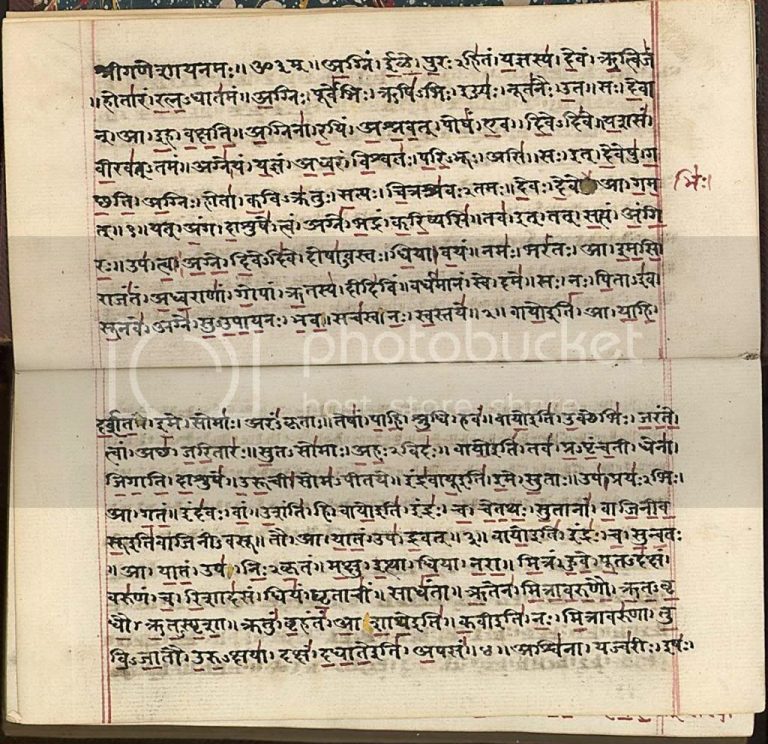 श्रीगणेशायनमः॥ॐ३म्॥अग्निं।ईळे।पुरःऽहितं।यज्ञस्य।देवं।ऋत्विजं
॥होतारं।रत्नऽधातमं॥अग्निः।पूर्वेभिः।ऋषिऽभिः।ईड्यः।नूतनैः।उत॥सः।देवा
न्।आ।इह।वक्षति॥अग्निना।रयिं।अश्नवत्।पोषं।एव।दिवेऽदिवे॥यशसं
वीरवत्ऽतमं॥अग्ने।यं।यज्ञं।अध्वरं।विश्वतः।परिऽभूः।असि॥सः।इत्।देवेषु।ग
च्छति॥अग्निः।होता।कविऽक्रतुः।सत्यः।चित्रश्रवःऽतमः॥देवः।देवे।आ।गम
भिः।
त्॥१॥यत्।अंग।दाशुषे।त्वं।अग्ने।भद्रं।करिष्यसि॥तव।इत्।तत्।सत्यं।अंगि
रः॥उप।त्वा।अग्ने।दिवेऽदिवे।दोषाऽवस्तः।धिया।वयं॥नमः।भरंतः।आ।इमसि॥
राजंतं।अध्वराणां।गोपां।ऋतस्य।दीदिविं॥वर्धमानं।स्वे।दमे॥सः।नः।पिताऽइव
सूनवे।अग्ने।सुऽउपायनः।भव॥सचस्व।नः।स्वस्तये॥२॥वायोइति।आ।याहि।
दर्शत।इमे।सोमाः।अरंऽकृताः॥तेषां।पाहि।श्रुधि।हवं॥वायोइति।उक्थेभिः।जरंते
त्वां।अच्छ।जरितारः॥सुतऽसोमाः।अहःऽविदः॥वायोइति।तव।प्रऽपृंचती।धेना।
जिगाति।दाशुषे॥उरूची।सोमऽपीतये॥इंद्रवायूइति।इमे।सुताः।उप।प्रयःऽभिः।
आ।गतं॥इंदवः।वां।उशंति।हि॥वायोइति।इंद्रः।च।चेतथः।सुतानां।वाजिनीव
सूइतिवाजिनीऽवसू॥तौ।आ।यातं।उप।द्रवत्॥३॥वायोइति।इंद्रः।च।सुन्वतः
॥आ।यातं।उप।निःऽकृतं॥मक्षु।इत्था।धिया।नरा॥मित्रं।हुवे।पूतऽदक्षं।
वरुणं।च।रिशादसं॥धियं।घृताचीं।साधंता॥ऋतेन।मित्रावरुणौ।ऋतऽवृ
धौ।ऋतऽस्पृशा॥क्रतुं।बृहंतं।आशाथेइति॥कवीइति।नः।मित्रावरुणा।तु
विऽजातौ।उरुऽक्षया॥दक्षं।दधातेइति।अपसं॥४॥अश्विना।यज्वरीः।इषः।
photobucket
host. store. share.